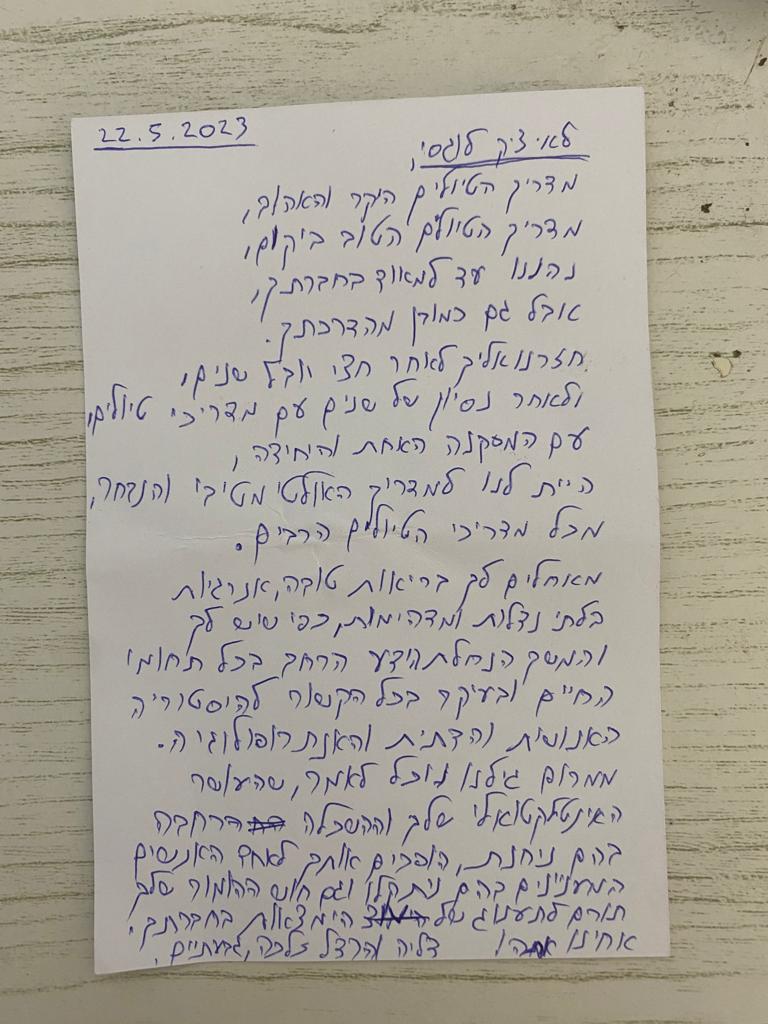 22.5.2023
לאיציק לנגסי,
מדריך הטיולים היקר והאהוב,
מדריך הטיולים הטוב ביקום,
נהננו עד למאוד בחברתך,
אובל גם כמובן מהדרכתך.
חזרנו אליך לאחר חצי יובל שנים,
ולאחר נסיון של שנים עם מדריכי טיולים,
עם המסקנה האחת והיחידה,
היית לנו למדריך האולטימטיבי והנבחר,
מכל מדריכי הטיולים הרבים.
מאחלים לך בריאות טובה, אנרגיות
בלתי נדלות ומדהימות, כפי שיש לך
והמשך הנחלת הידע הרחב בכל תחומי
החיים ובעיקר בכל הקשור להיסטוריה
האנושית והדתית והאנתרופולוגיה.
ממרום גילנו נוכל לאמר, שהעושר
האינטלקטואלי שלך וההשכלה הרחבה
בהם ניחנת, הופכים אותך לאחד האנשים
המעניינים בהם ניתקלנו וגם חוש ההומור שלך
תורם לתענוג של הימצאות בחברתך.
דליה והרצל, גבעתיים.